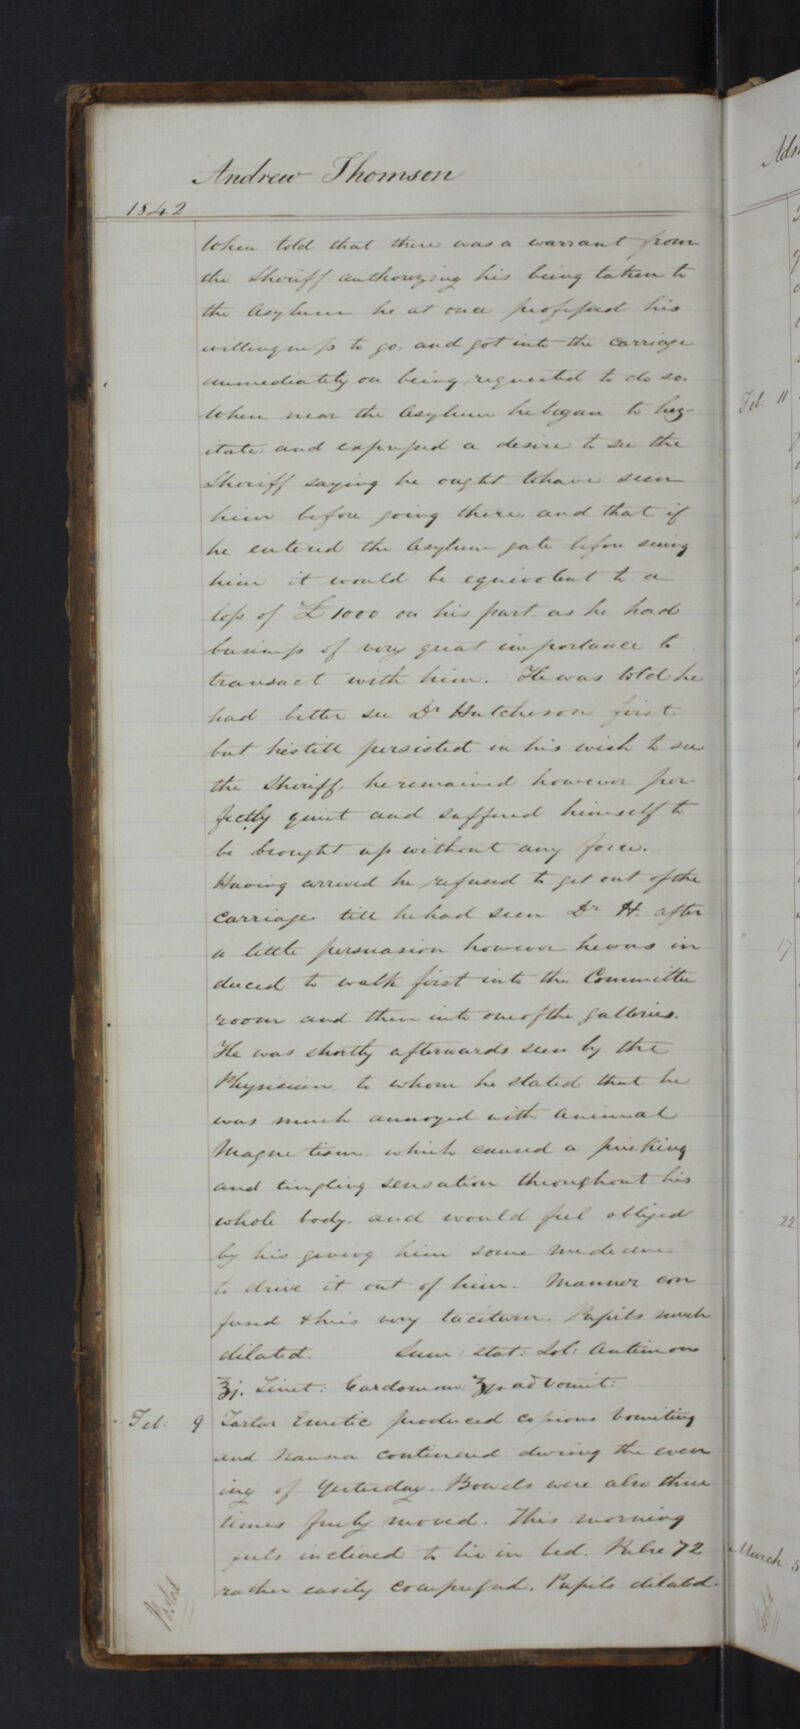 Andrew Thomson
1842
When told that there was a warrant from
the Sheriff authorizing his being taken to
the Asylum he at once professed his
willingness to go, and got into the Carriage
immediately on being requested to do so.
When near the Asylum he began to hez-
itate and expressed a desire to see the
Sheriff saying he ought to have seen
him before going there, and that if
he entered the Asylum gate before seeing
him it would be equivolent to a
loss of £1000 on his part as he had
business of very great importance to
transact with him. He was told he
had better see Dr Hutcheson first.
but he still persisted in his wish to see
the Sheriff, he remained however per-
fectly quiet and suffered himself to
be brought up without any force.
Having arrived he refused to get out of the
Carriage till he had seen Dr H. after
a little persuasion however he was in
duced to walk first into the Committee
room and then into one of the galleries.
He was shortly afterwards seen by the
Physician to whom he stated that he
was much annoyed with animal
Magnetism which caused a pricking
and tingling sensation throughout his
whole body, and would feel obliged
by his giving him some medicine
to drive it out of him. Manner con
fused & he is very taciturn. Pupils much
dilated. Sum: Stat: Sol: Antimon
℥j. Tinct: Cardomom: ad vomit:
Feb: 9 Tartar Emetic produced copious vomiting
and Nausea continued during the even
ing of Yesterday. Bowels were also three
times freely moved. This morning
feels inclined to lie in bed. Pulse 72
rather easily compressed. Pupils dilated.
Adm
Feb. 11
17
22
March 5